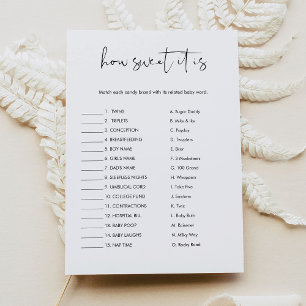 how sweet it is
Match each candy brand with its related baby word.
1. TWINS A. Sugar Daddy
2. TRIPLETS B. Mike & Ike
3. CONCEPTION C. Payday
4. BREASTFEEDING D. Snickers
5. BOY NAME E. Dove
6. GIRLS NAME F. 3 Musketeers
7. DAD'S NAME G. 100 Grand
8. SLEEPLESS NIGHTS H. Whoppers
9. UMBILICAL CORD I. Take Five
10. COLLEGE FUND J. Snickers
11. CONTRACTIONS K. Twix
12. HOSPITAL BILL L. Baby Ruth
13. BABY POOP M. Raisinet
14. BABY LAUGHS N. Milky Way
15. NAP TIME O. Rocky Road